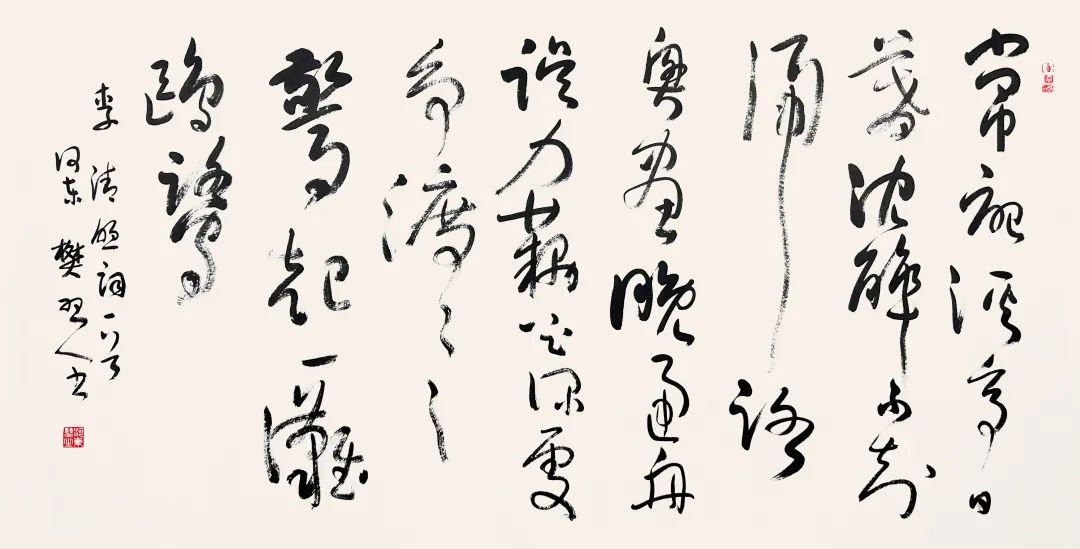 常記溪亭日
暮沈醉不知
歸路
興盡晚回舟
誤入藕花深處
爭渡〻〻
驚起一灘
鷗鷺
李清照詞一首
河東樊習人書